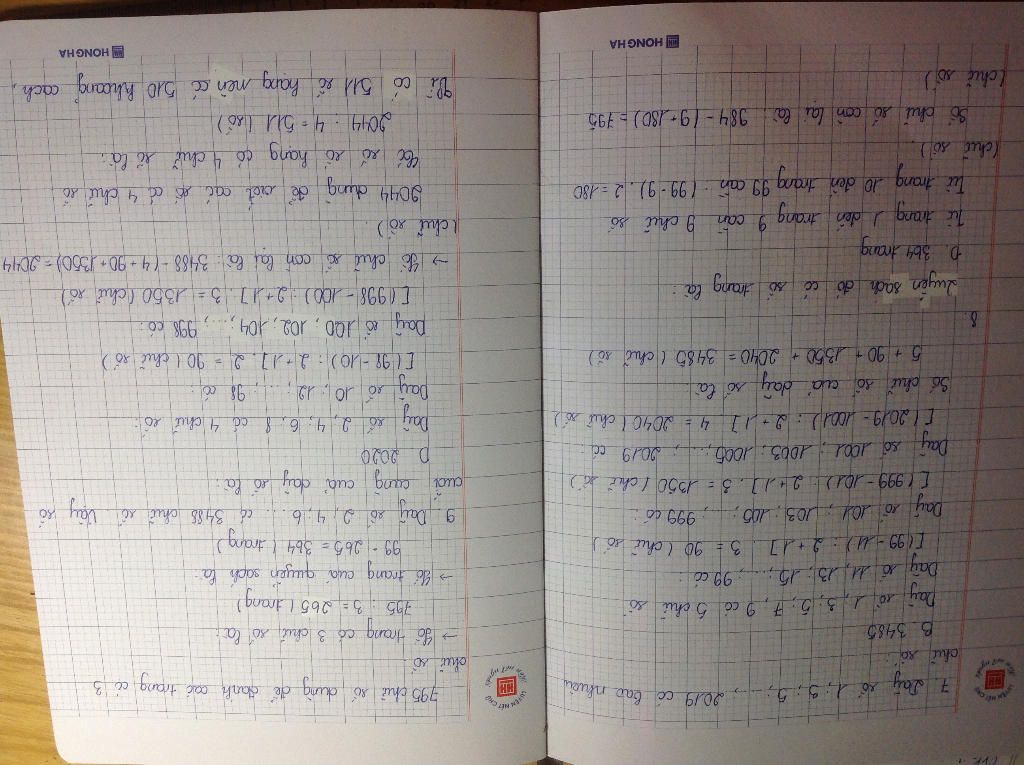 LUYỆN NÉT CHỮ
RÈN NẾT NGƯỜI
7. Dãy số 1; 3; 5; ...; 2019 có bao nhiêu
chữ số:
B 3485
Dãy số 1; 3; 5; 7; 9 có 5 chữ số
Dãy số 11; 13; 15; ...; 99 có:
[(99-11) : 2+1] . 3 = 90 (chữ số)
Dãy số 101; 103; 105; ...; 999 có:
[(999-101) : 2+1] . 3 = 1350 (chữ số)
Dãy số 1001; 1003; 1005; ...; 2019 có:
[(2019-1001) : 2+1] . 4 = 2040 (chữ số)
Số chữ số của dãy số là:
5 + 90 + 1350 + 2040 = 3485 (chữ số)
8.
Quyển sách đó có số trang là:
D 364 trang
Từ trang 1 đến trang 9 cần 9 chữ số
Từ trang 10 đến trang 99 cần: (99-9) . 2 = 180
(chữ số).
Số chữ số còn lại là: 984 - (9+180) = 795
(chữ số)
HONG HA
LUYỆN NÉT CHỮ
RÈN NẾT NGƯỜI
795 chữ số dùng để đánh các trang có 3
chữ số.
→ Số trang có 3 chữ số là:
795 : 3 = 265 (trang)
→ Số trang của quyển sách là:
99 - 265 = 364 (trang)
9. Dãy số 2; 4; 6; ... có 3488 chữ số. Vậy số
cuối cùng của dãy số là:
D 2020
Dãy số 2; 4; 6; 8 có 4 chữ số:
Dãy số 10; 12; ...; 98 có:
[(98-10) : 2+1] . 2 = 90 (chữ số)
Dãy số 100; 102; 104; ...; 998 có:
[(998-100) : 2+1] . 3 = 1350 (chữ số)
→ Số chữ số còn lại là: 3488 - (4+90+1350) = 2044
(chữ số).
2044 dùng để viết các số có 4 chữ số
Số số số hạng có 4 chữ số là:
2044 : 4 = 511 (số)
Vì có 511 số hạng nên có 510 khoảng cách,
HONG HA